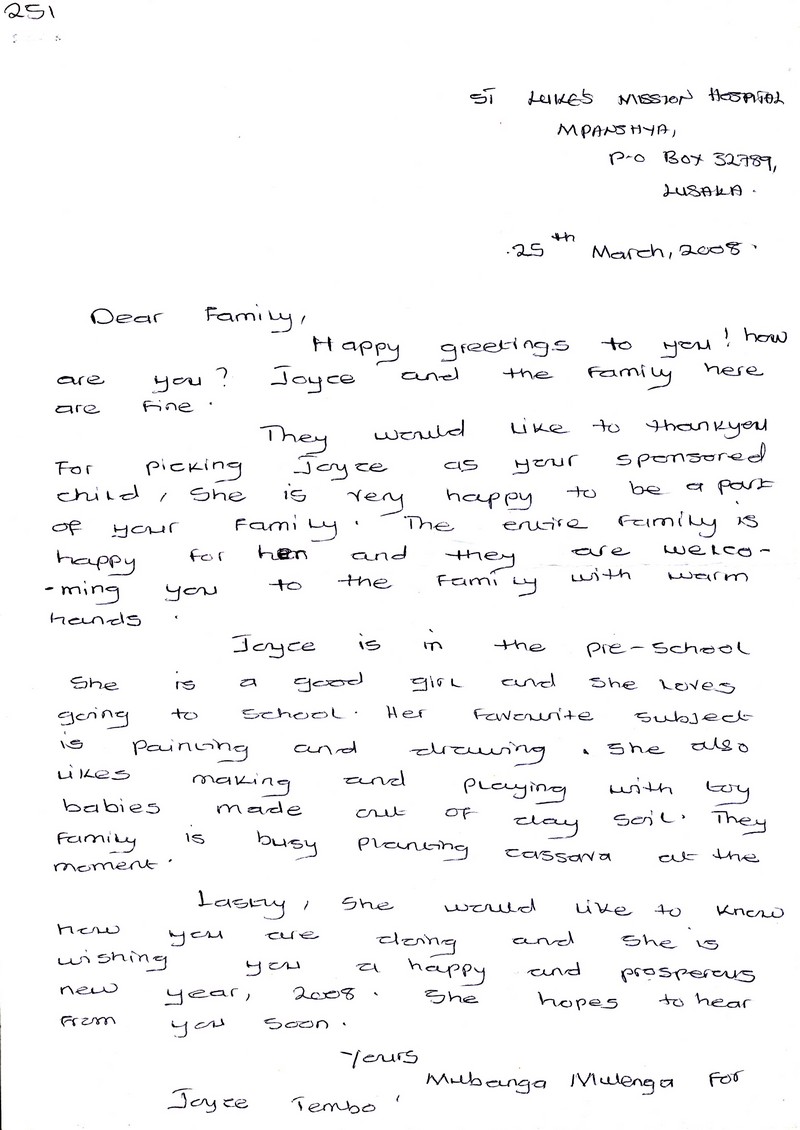 251
ST LUKE'S MISSION HOSPITAL
MPANSHYA,
P.O BOX 32789,
LUSAKA.
25th March, 2008.
Dear Family,
Happy greetings to you! how
are you? Joyce and the family here
are fine.
They would like to thankyou
For picking Joyce as your sponsored
child, She is very happy to be a part
of your family. The entire family is
happy for her and they are welco-
-ming you to the family with warm
hands.
Joyce is in the pre-school
She is a good girl and she loves
going to school. Her favourite subject
is painting and drawing. She also
likes making and playing with toy
babies made out of clay soil. They
family is busy planting cassava at the
moment.
Lastly, she would like to know
how you are doing and she is
wishing you a happy and prosperous
new year, 2008. She hopes to hear
from you soon.
Yours
Mubanga Mulenga For
Joyce Tembo